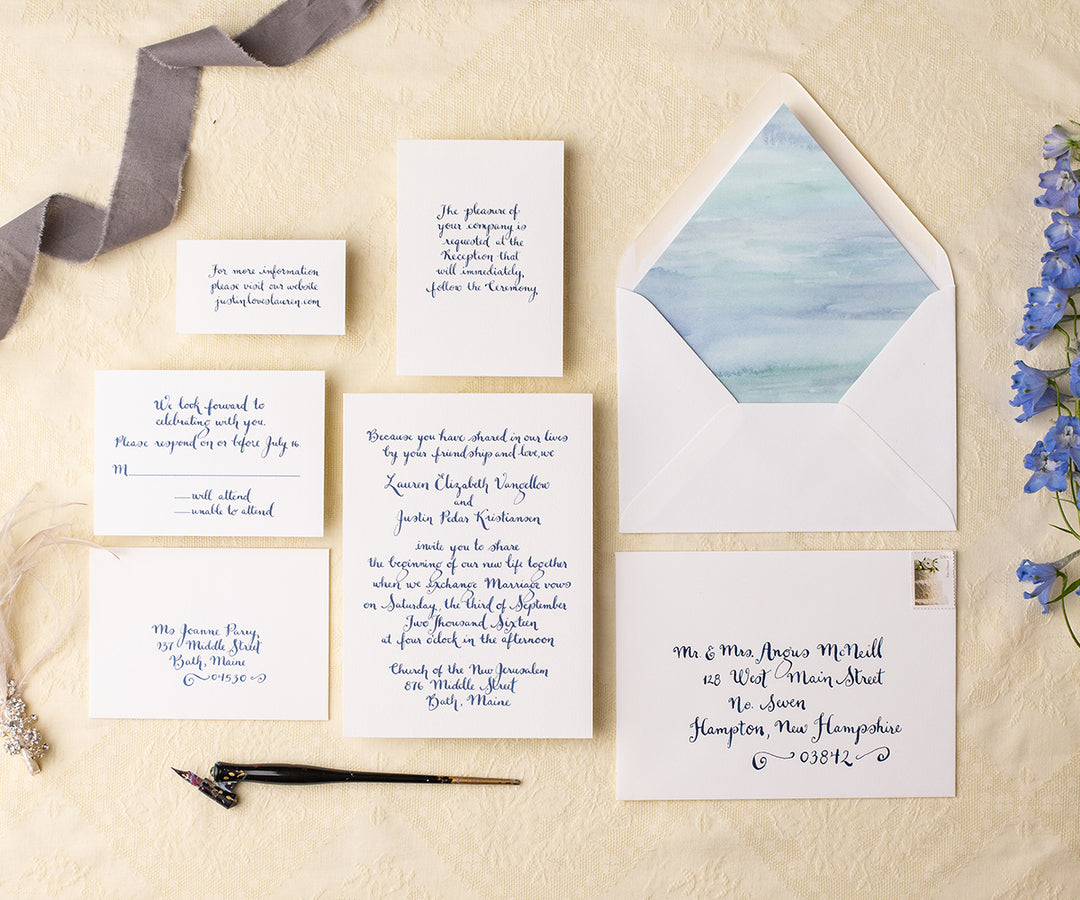 The pleasure of
your company is
requested at the
Reception that
will immediately,
follow the Ceremony,
For more information
please visit our website
justinloveslauren.com
We look forward to
celebrating with you.
Please respond on or before July 16.
M
will attend
unable to attend
Because you have shared in our lives
by your friendship and love, we
Lauren Elizabeth Vangellow
and
Justin Pedar Kristiansen
invite you to share
the beginning of our new life together
when we exchange Marriage vows
on Saturday, the third of September
Two Thousand Sixteen
at four o'clock in the afternoon
Church of the New Jerusalem
876 Middle Street
Bath, Maine
Ms Joanne Parry,
937 Middle Street
Bath, Maine
04530
Mr. & Mrs. Angus McNeill
128 West Main Street
No. Seven
Hampton, New Hampshire
03842